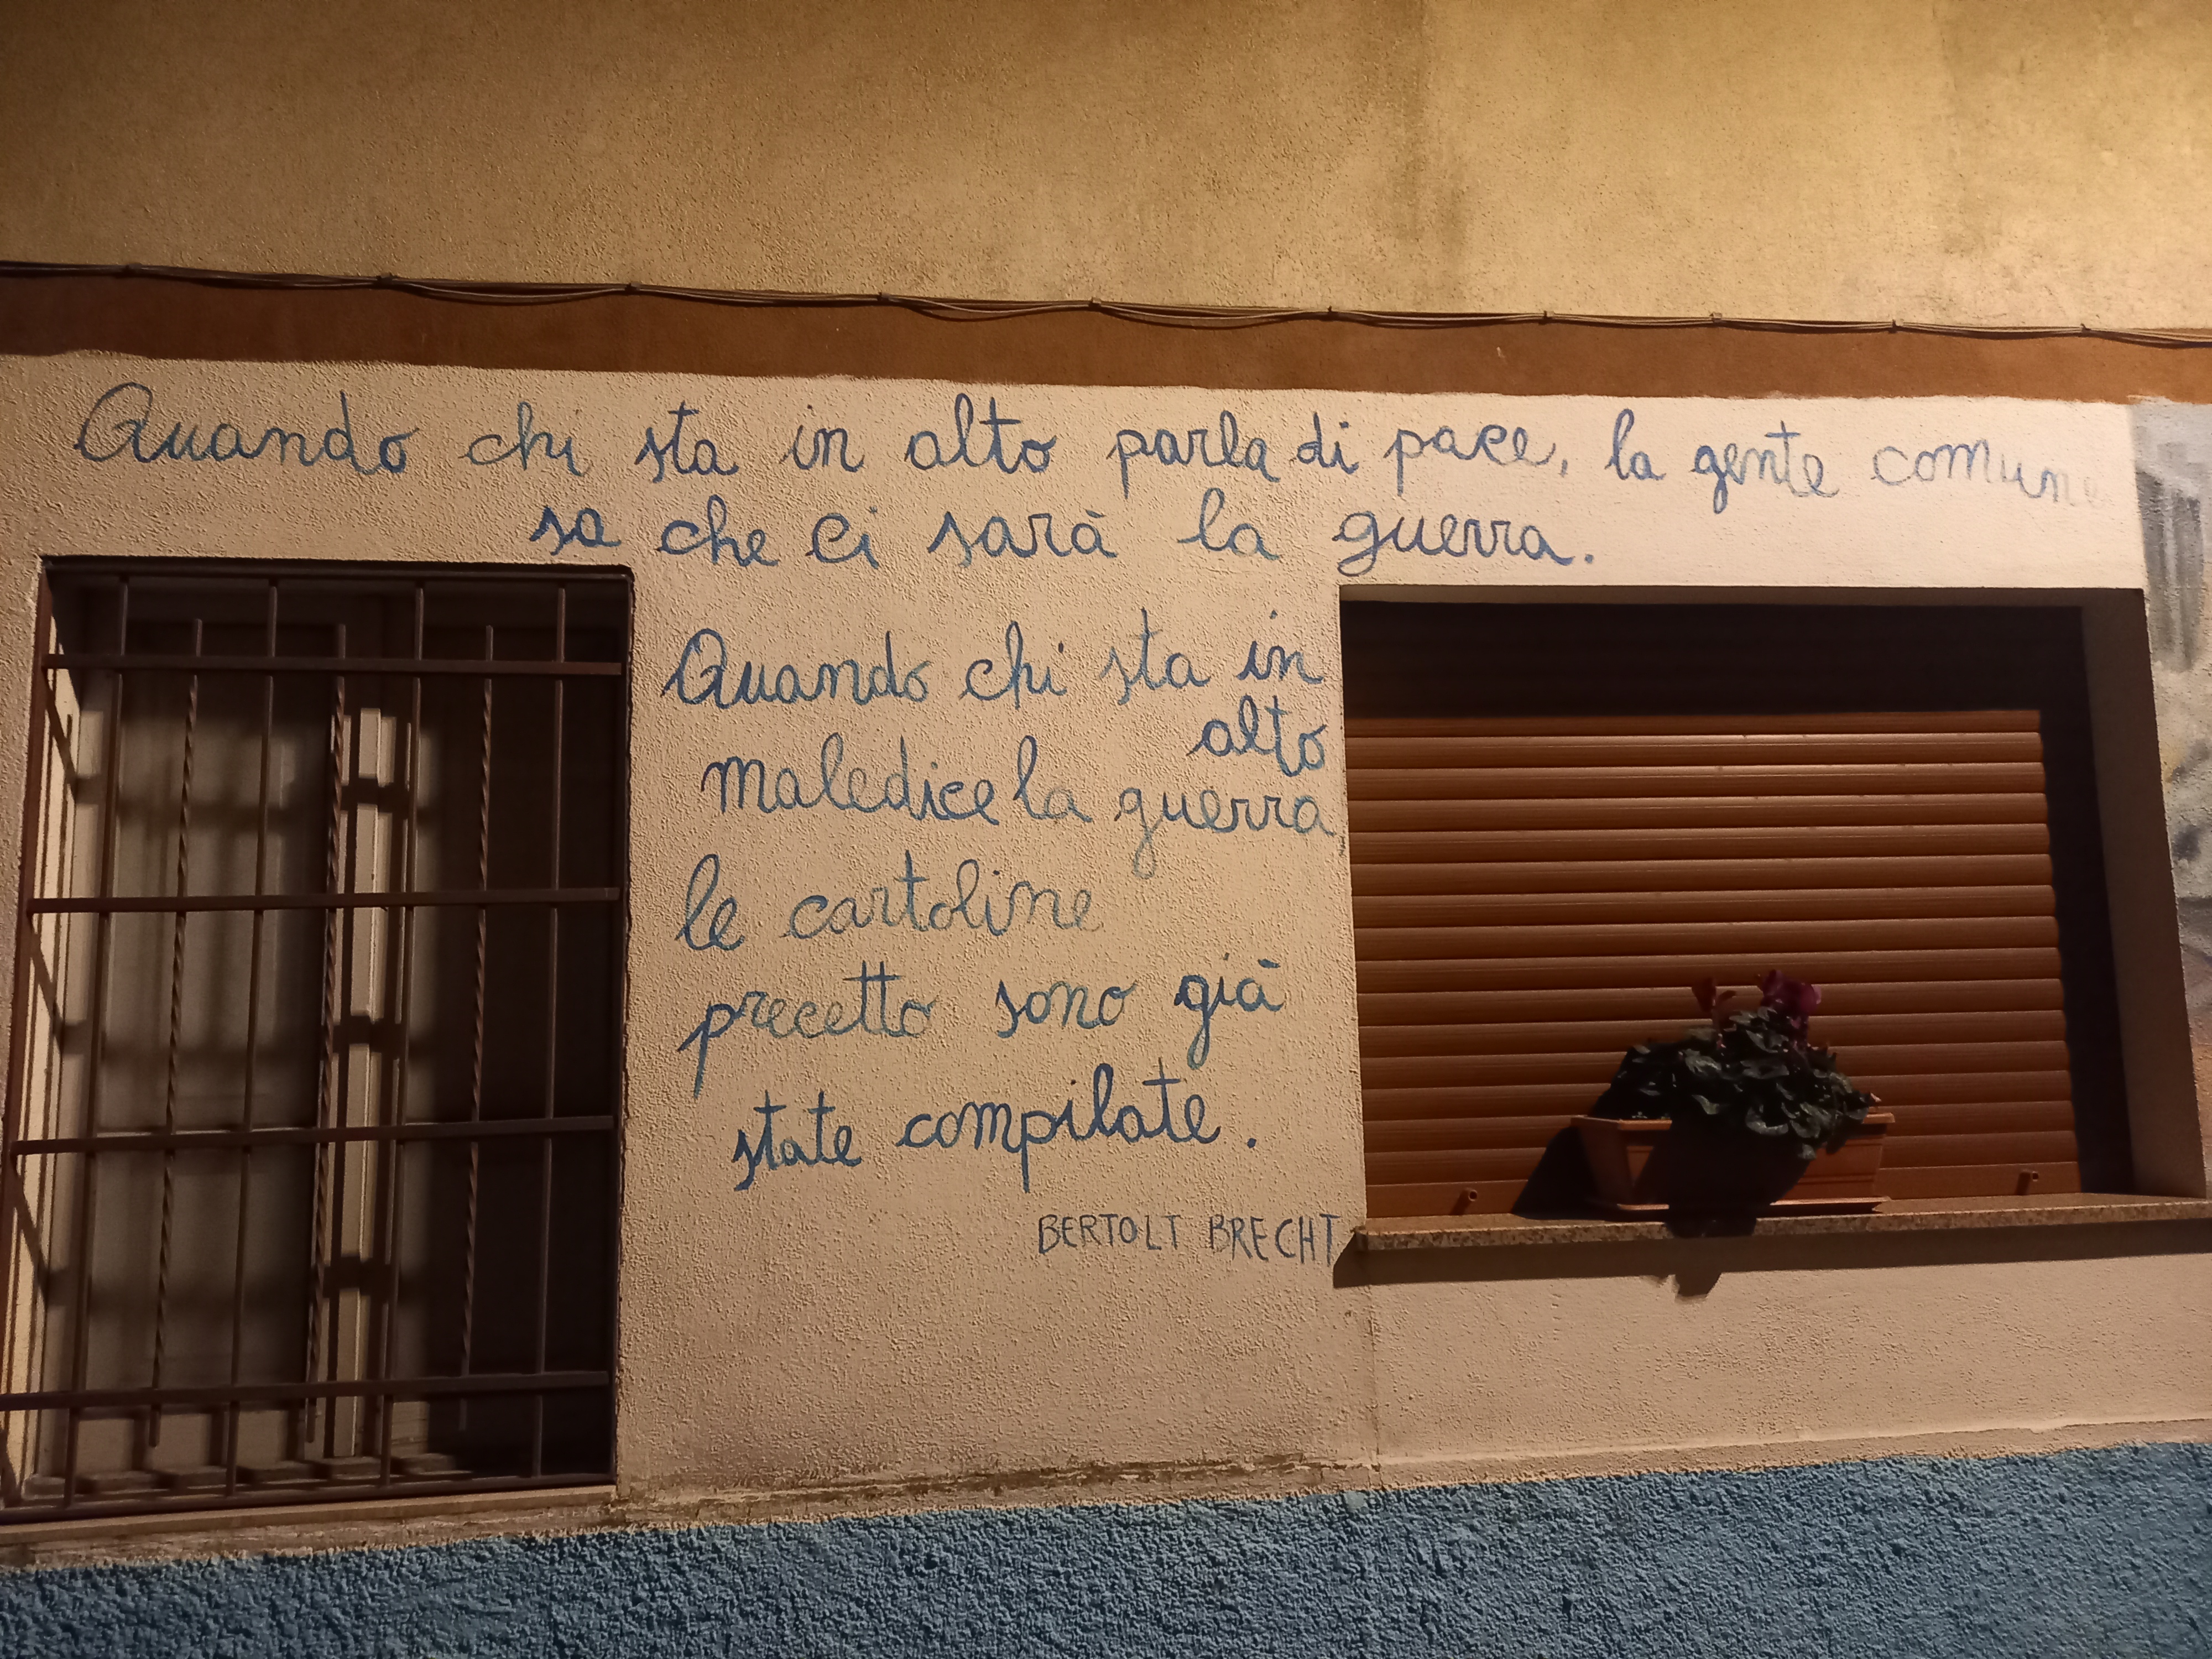 Quando chi sta in alto parla di pace, la gente comune
sa che ci sarà la guerra.
Quando chi sta in
alto
maledice la guerra,
le cartoline
precetto sono già
state compilate.
BERTOLT BRECHT